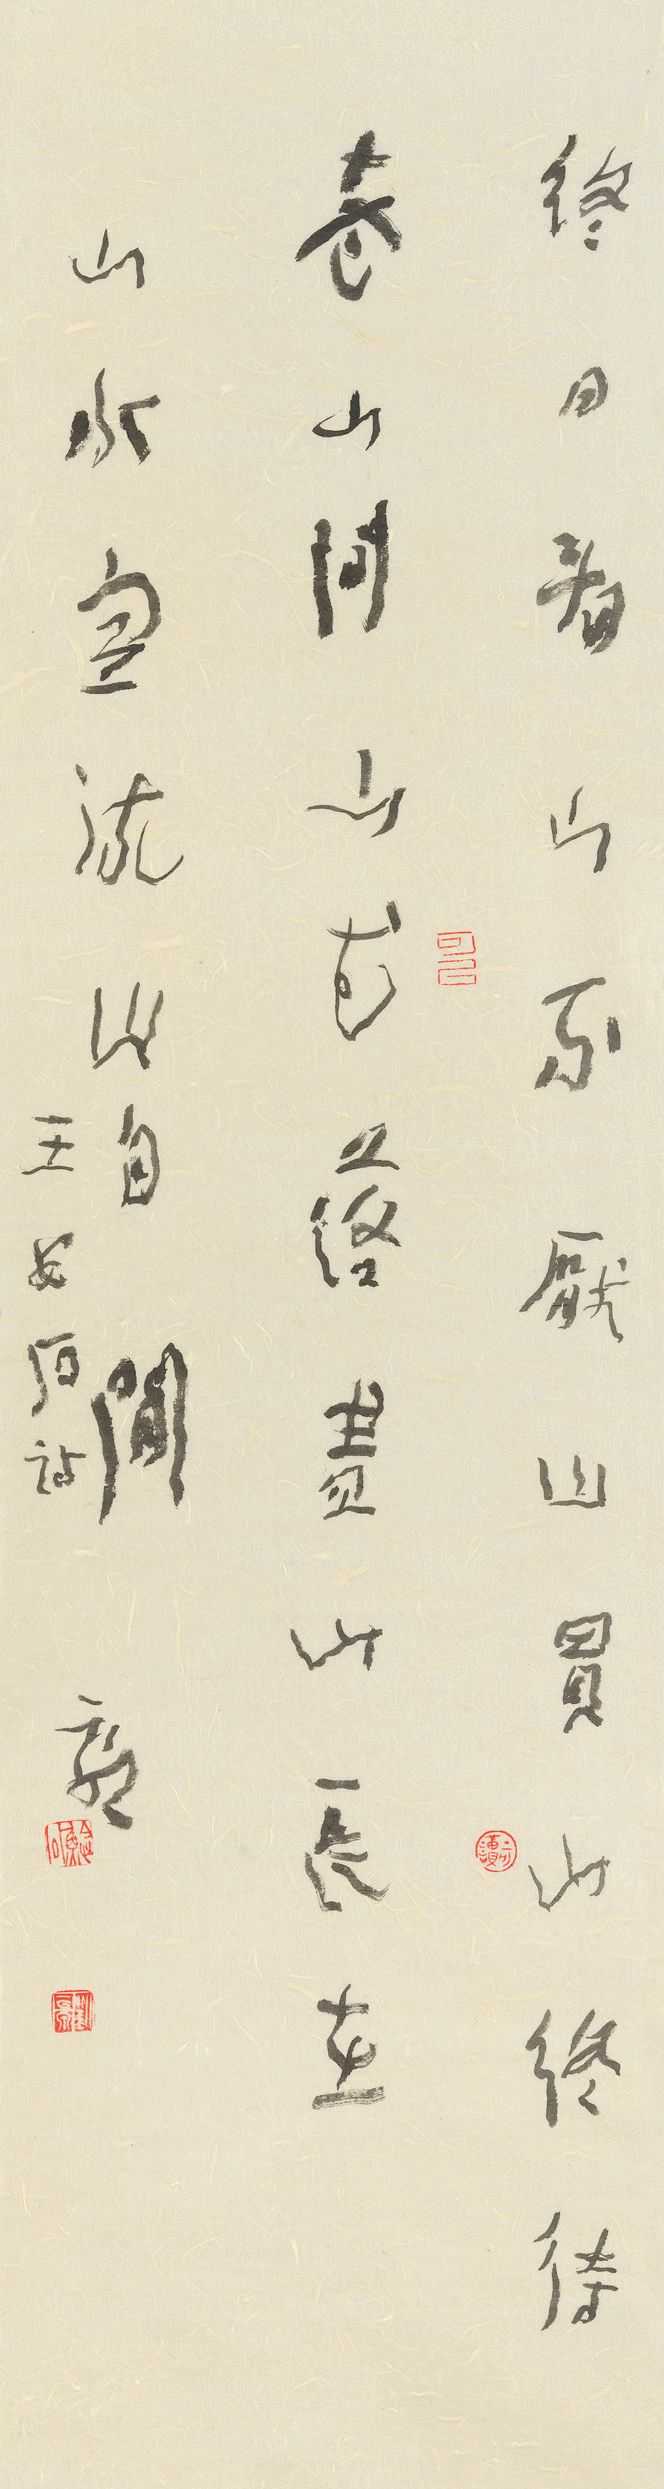 終日看山不厭山買山終待
老山間山花落盡山長在
山水空流山自閒
王安石詩